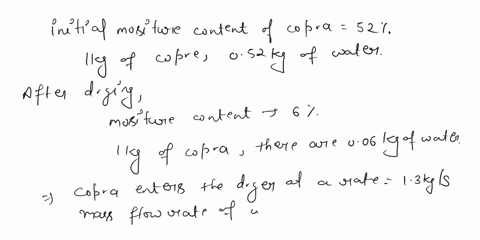 initial mositure content of copra = 52%.
1kg of copre, 0.52kg of water.
After drging,
mositure content → 6%.
1kg of copra, there are 0.06kg of water
⇒ copra enters the drger at a rate = 1.3kg/s
mass flow rate of